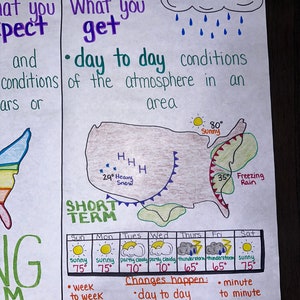 hat you
xpect
and
conditions
ars or
NG
M
What you
get
• day to day conditions
of the atmosphere in an
area
80°
Sunny
H H H
29° Heavy
Snow
35° Freezing
Rain
SHORT
TERM
Sun Mon Tues Wed Thurs Fri Sat
sunny sunny partly cloudy partly cloudy thunderstorm thunderstorm sunny
75° 75° 70° 70° 65° 65° 75°
Changes happen:
• week
to week
• day to day
• minute
to minute